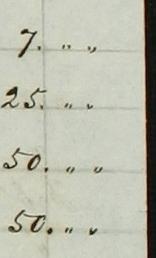 7. " "
25. " "
50. " "
50. " "